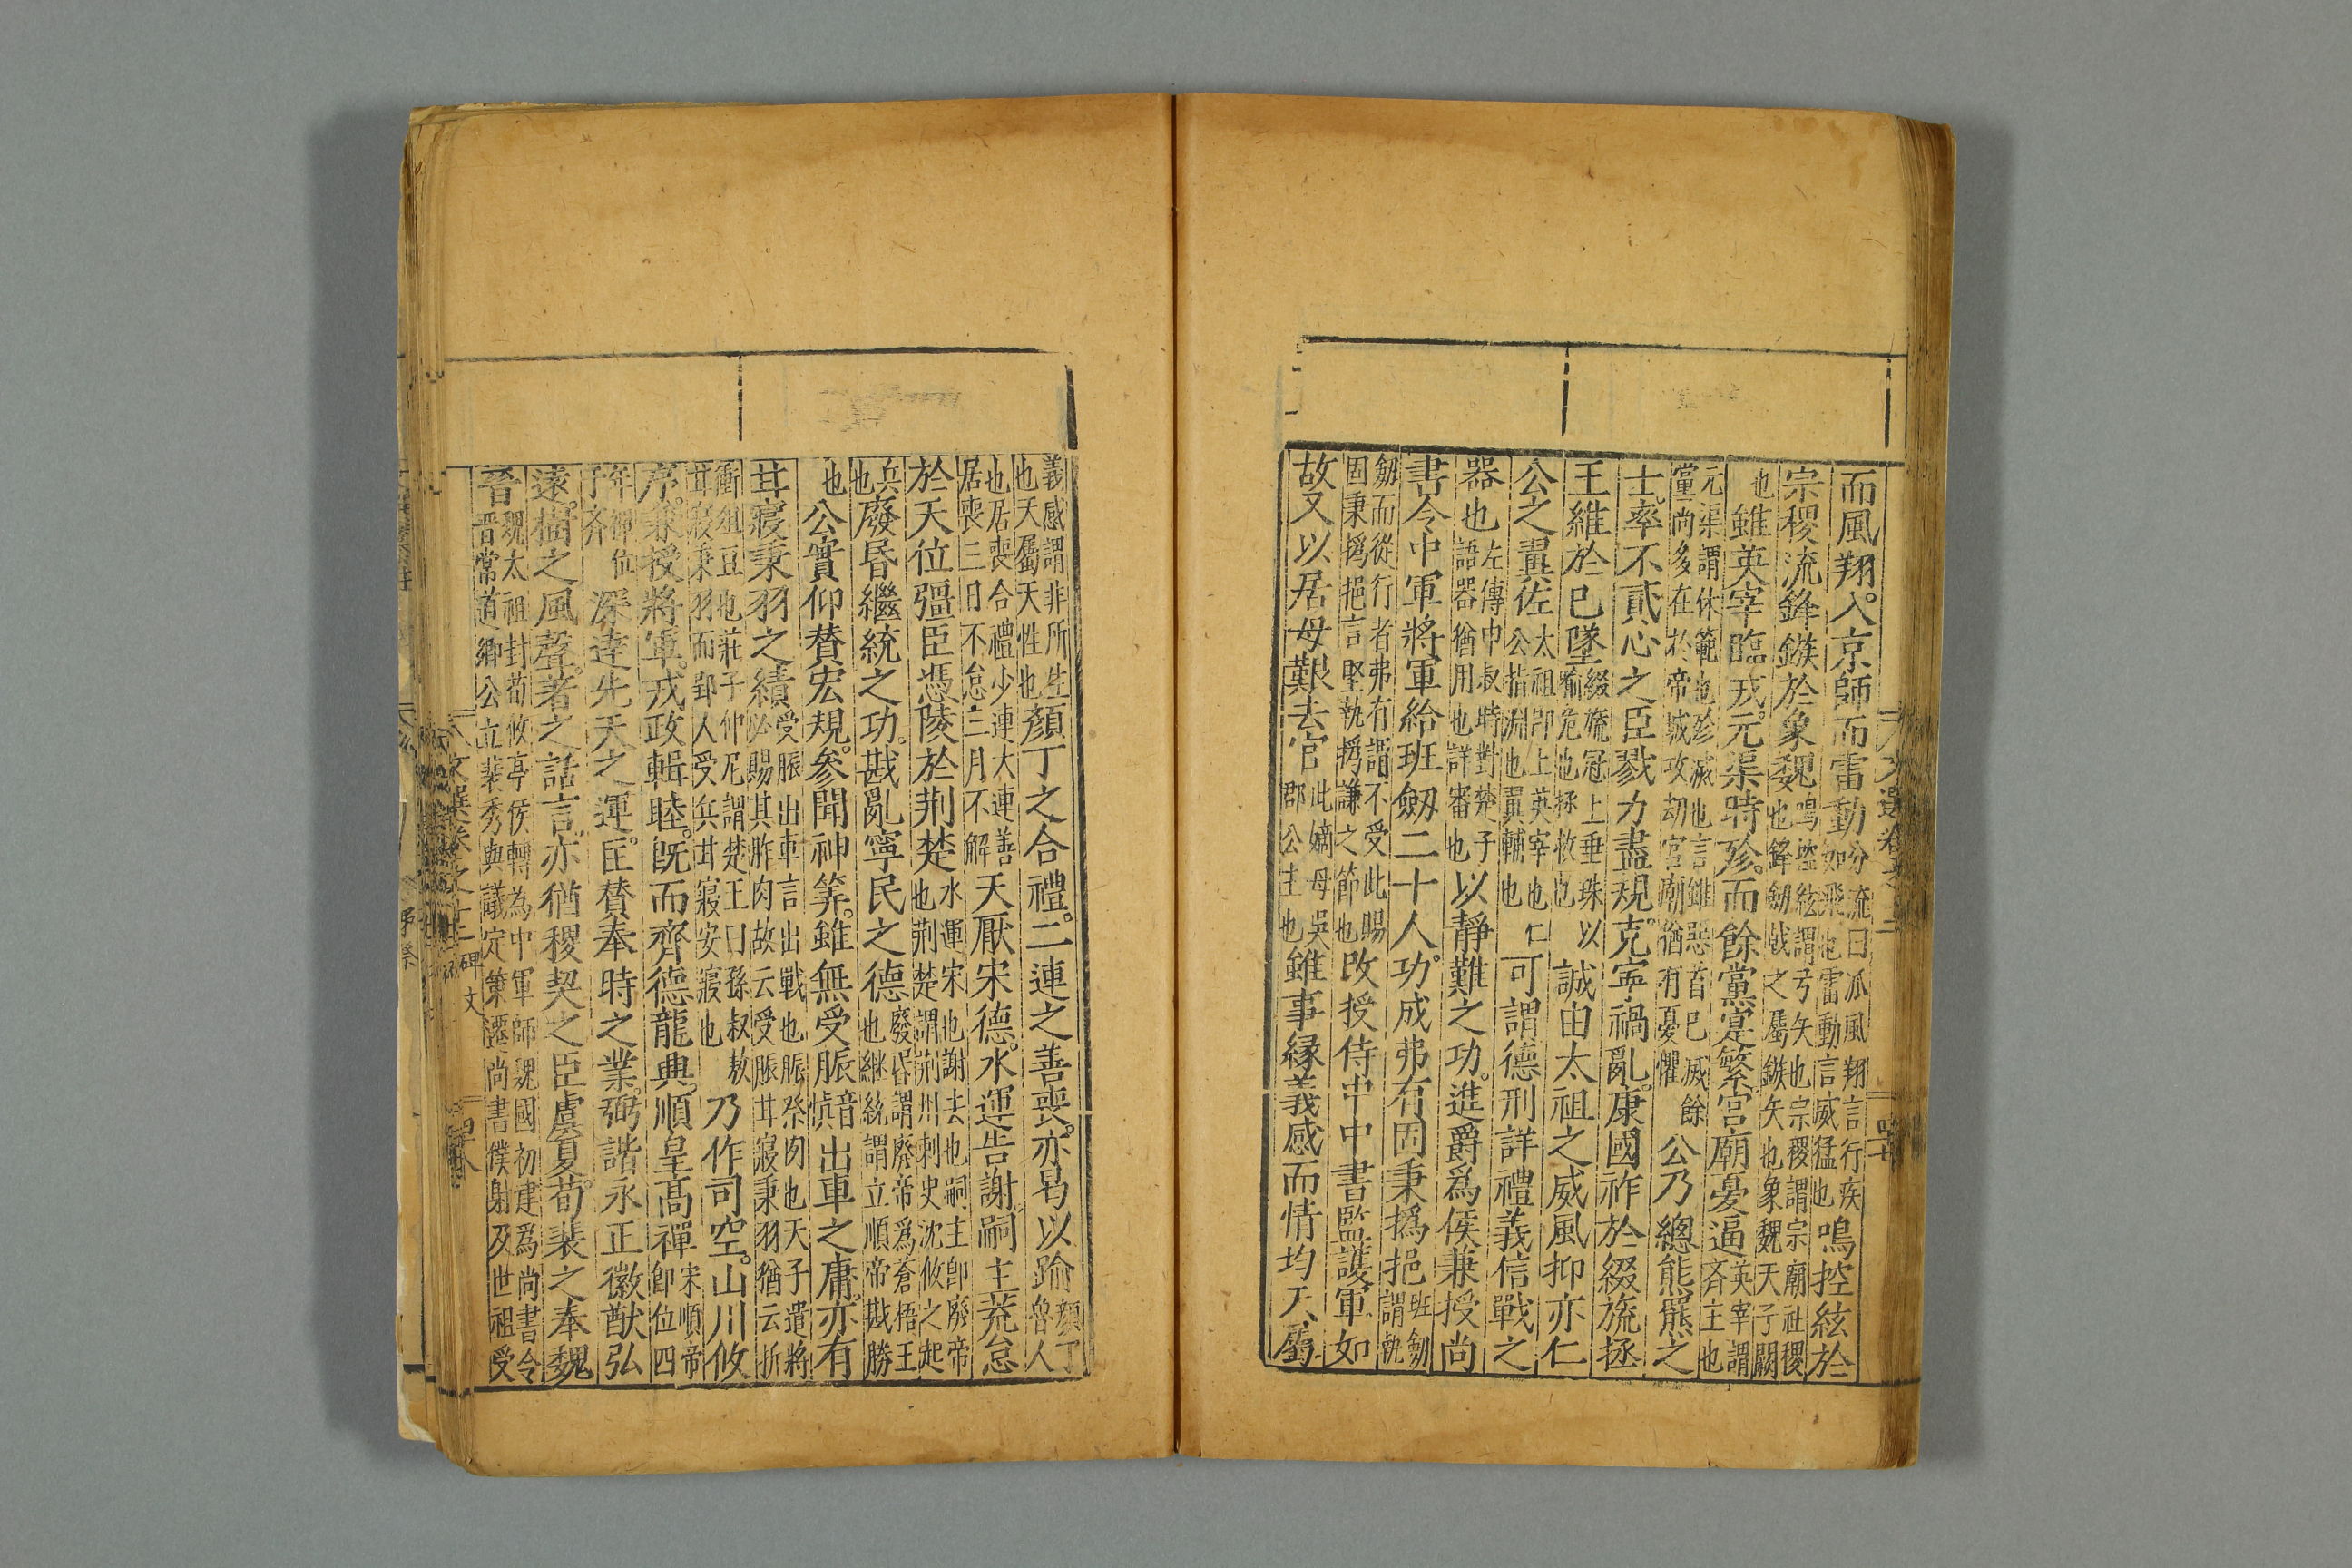 而風翔。入京師而雷動。汾流曰派風翔言行疾如飛也雷動言威猛也鳴控絃於
宗稷流鋒鏃於象魏鳴控絃謂弓矢也宗稷謂宗廟社稷也鋒劒戟之屬鏃矢也象魏天子闕
也雖英宰臨戎。元渠時殄。而餘黨寔繁。宮廟憂逼英宰謂齊主也
元渠謂休範也殄滅也言雖惡首已滅餘黨尚多在於帝城攻刼宮廟猶有憂懼公乃緫熊羆之
士。率不貳心之臣戮力盡規。克寜禍亂。康國祚於綴旒拯
王維於已墜綴旒冠上垂珠以喻危也拯救也誠由太祖之威風抑亦仁
公之翼佐太祖即上英宰也仁公指淵也翼輔也可謂德刑詳禮義信戰之
器也左傳中叔時對楚子語器猶用也詳審也以靜難之功。進爵爲侯兼授尚
書令中軍將軍給班劒二十人。功成弗有固秉撝挹班劒謂執
劒而從行者弗有謂不受此賜固秉撝挹言堅執撝謙之節也改授侍中中書監護軍如
故又以居母艱去官此嫡母吳郡公主也雖事緣義感而情均天屬
義感謂非所生也天屬天性也顏丁之合禮。二連之善喪。亦曷以踰顏丁魯人
也居喪合禮少連大連善居喪三日不怠三月不解天厭宋德。水運告謝。嗣主荒怠
於天位彊臣憑陵於荆楚水運宋也謝去也嗣主即廢帝也荆楚謂荊州刺史沈攸之起
兵也廢昏繼統之功。戡亂寧民之德廢昏謂廢帝爲蒼梧王也継統謂立順帝戡勝
也公實仰贊宏規。參聞神筭。雖無受脤音慎出車之庸。亦有
甘寢秉羽之績受脤出車言出戰也脤祭肉也天子遣將必賜其胙肉故云受脤甘寢秉羽猶云折
衝俎豆也莊子仲尼謂楚王曰孫叔敖甘寢秉羽而郢人受兵甘寢安寢也乃作司空。山川攸
序。兼授將軍。戎政輯睦。旣而齊德龍興。順皇高禪宋順帝即位四
年禪位于齊深達先天之運。匡贊奉時之業。弼諧永正徽猷弘
遠。樹之風聲。著之話言。亦猶稷契之臣虞夏。荀裴之奉魏
晉魏太祖封荀攸亭侯轉為中軍師魏國初建爲尚書令晋常道鄉公立裴秀與議定策遷尚書僕射及世祖受
文選卷之十二 碑文